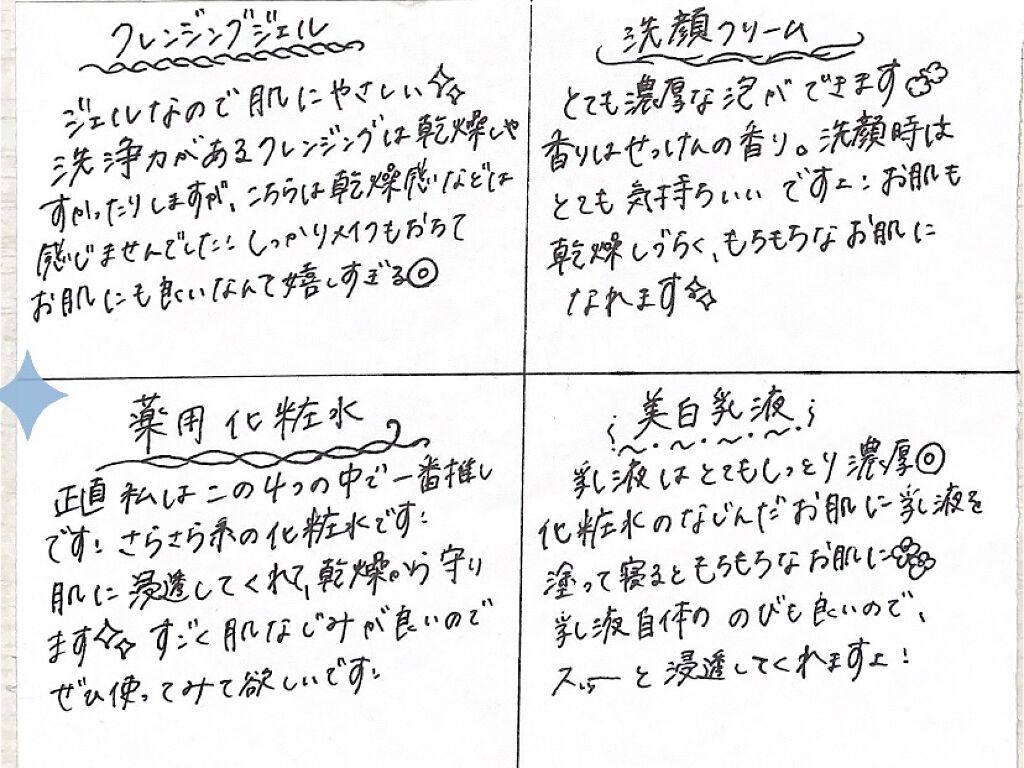 クレンジングジェル
ジェルなので肌にやさしい
洗浄力があるクレンジングは乾燥しや
すかったりしますが、こちらは乾燥感などは
感じませんでした! しっかりメイクもおちて
お肌にも良いなんて嬉しすぎる◎
洗顔クリーム
とても濃厚な泡ができます
香りはせっけんの香り。洗顔時は
とても気持ちいいですよ! お肌も
乾燥しづらく、もちもちなお肌に
なれます
薬用化粧水
正直私はこの4つの中で一番推し
です! さらさら系の化粧水です!
肌に浸透してくれて、乾燥から守り
ます すごく肌なじみが良いので
ぜひ使ってみて欲しいです!
美白乳液
乳液はとてもしっとり濃厚◎
化粧水のなじんだお肌に乳液を
塗って寝るともちもちなお肌に
乳液自体ののびも良いので、
スぅーと浸透してくれますよ!